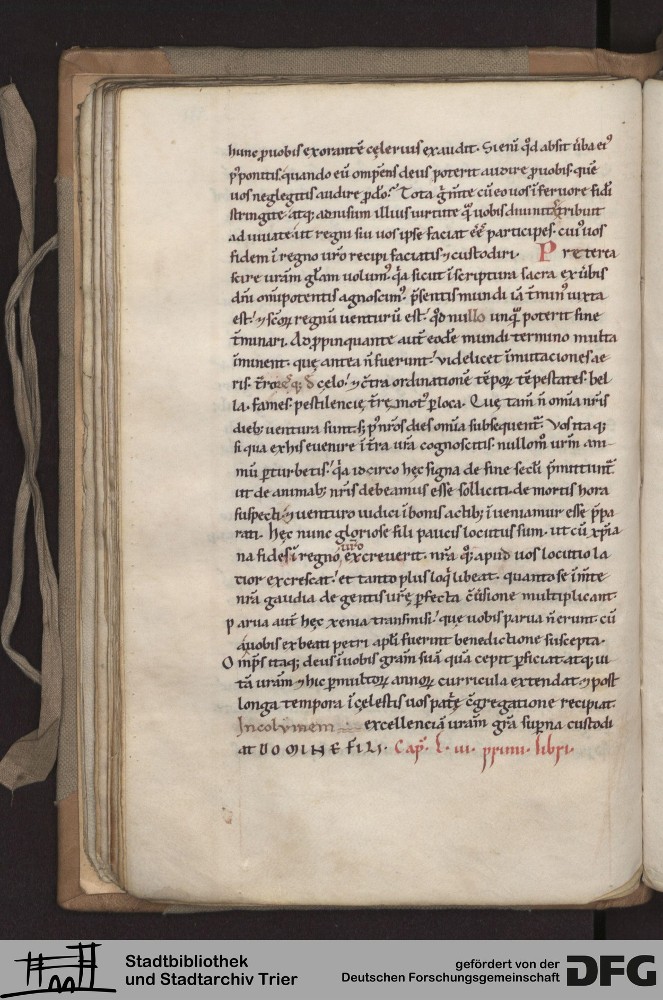 hunc ꝓ uobis exorantē celerius exaudit. Si eni qd absit uba ei
pponitis. quando eū omptens deus poterit audire ꝓ uobis. que
uos neglegitis audire ꝓ do? Tota gmte cū eo uos i feruore fidi
stringite atq; adnisum illius uirtute q uobis diuinit tribuit
adiuuate. ut regni sui uos ipse faciat ee participes. cui uos
fidem i regno uro recipi faciatis & custodiri. Preterea
scire uram glam uolum. qa sicut i scriptura sacra ex ubis
dni omipotentis agnoscim. psentis mundi iā tmin iuxta
est. & scor regnū uenturū est. qd nullo unq poterit fine
tminari. Adppinquante aut eode mundi termino multa
iminent. que antea n fuerunt. uidelicet imutaciones ae
ris. celo. & ctra ordinatione tepor tepestates. bel
la. fames. pestilencie. tre mot p loca. Que tam n omia nris
dieb; uentura sunt. s; p nros dies omia subsequent. Vos ita q;
si qua ex his euenire i tra ura cognoscitis. nullom urm ani
mū pturbetis. qa idcirco hec signa de fine secli pmittunt
ut de animab; nris debeamus esse solliciti. de mortis hora
suspecti. & uenturo iudici i bonis actib; iueniamur esse ppa
rati. Hec nunc gloriose fili paucis locutus sum. ut cū xpia
na fides i regno uro excreuerit. nra q; apud uos locutio la
tior excrescat. et tanto plus loq libeat. quanto se imte
nra gaudia de gentis ure pfecta cusione multiplicant.
Parua aut hec xenia transmisi. que uobis parua n erunt. cū
a uobis ex beati petri apli fuerint benedictione suscepta.
Omps itaq; deus i uobis gram suā quā cepit pficiat. atq; ui
tā uram & hic p multor annor curricula extendat. & post
longa tempora i celestis uos patē cgregatione recipiat.
Incolymem excellenciā uram gra supna custodi
at DOMINE FILI. Cap. L. iii. primi. libri.
Stadtbibliothek
und Stadtarchiv Trier
gefördert von der
Deutschen Forschungsgemeinschaft
DFG